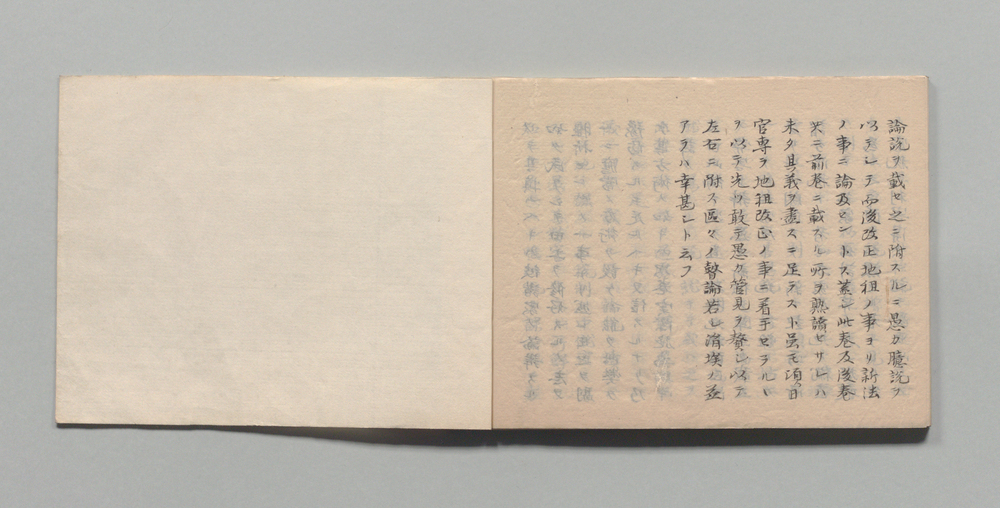 論説ヲ載セ之ニ附スルニ愚カ臆説ヲ
以テシテ而後改正地租ノ事ヨリ新法
ノ事ニ論及セントス蓋シ此巻及後巻
共ニ前巻ニ載スル所ヲ熟讀セサレハ
未タ其義ヲ盡スニ足ラスト虽モ項日
官専ラ地租改正ノ事ニ着手セラルヽ
ヲ以テ先ツ敢テ愚カ管見ヲ贅シ以テ
左右ニ附ス區々ノ瞽論若シ涓埃ノ益
アラハ幸甚シト云フ